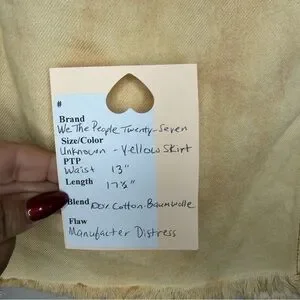 #
Brand
We The People Twenty-Seven
Size/Color
Unknown - Yellow Skirt
PTP
Waist 13"
Length 17½"
Blend 100% Cotton-Baumwolle
Flaw
Manufacter Distress